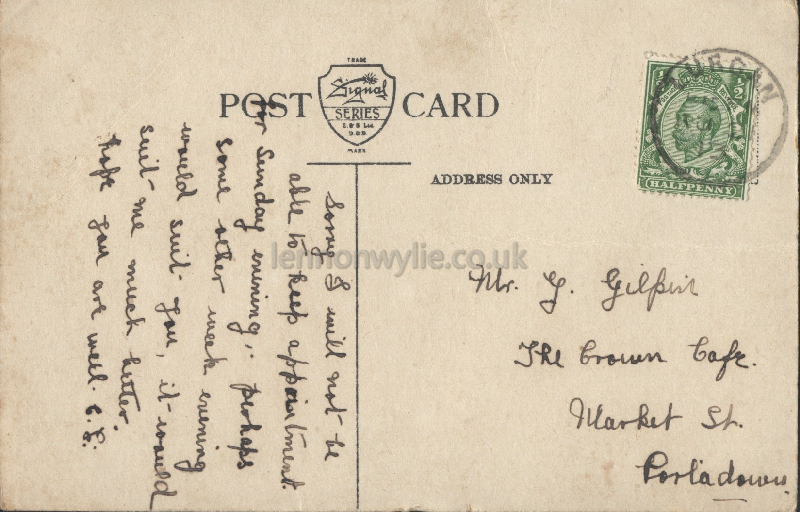 TRADE
Signal
SERIES
E. & S Ltd.
D. & B.
MARK
POST CARD
ADDRESS ONLY
LURGAN
HALFPENNY
½
Sorry I will not be
able to keep appointment
for Sunday evening,. perhaps
some other week evening
would suit you, it would
suit me much better.
hope you are well.
Mr. Y. Gilpin
The Crown Cafe.
Market St.
Portadown.
lennonwylie.co.uk